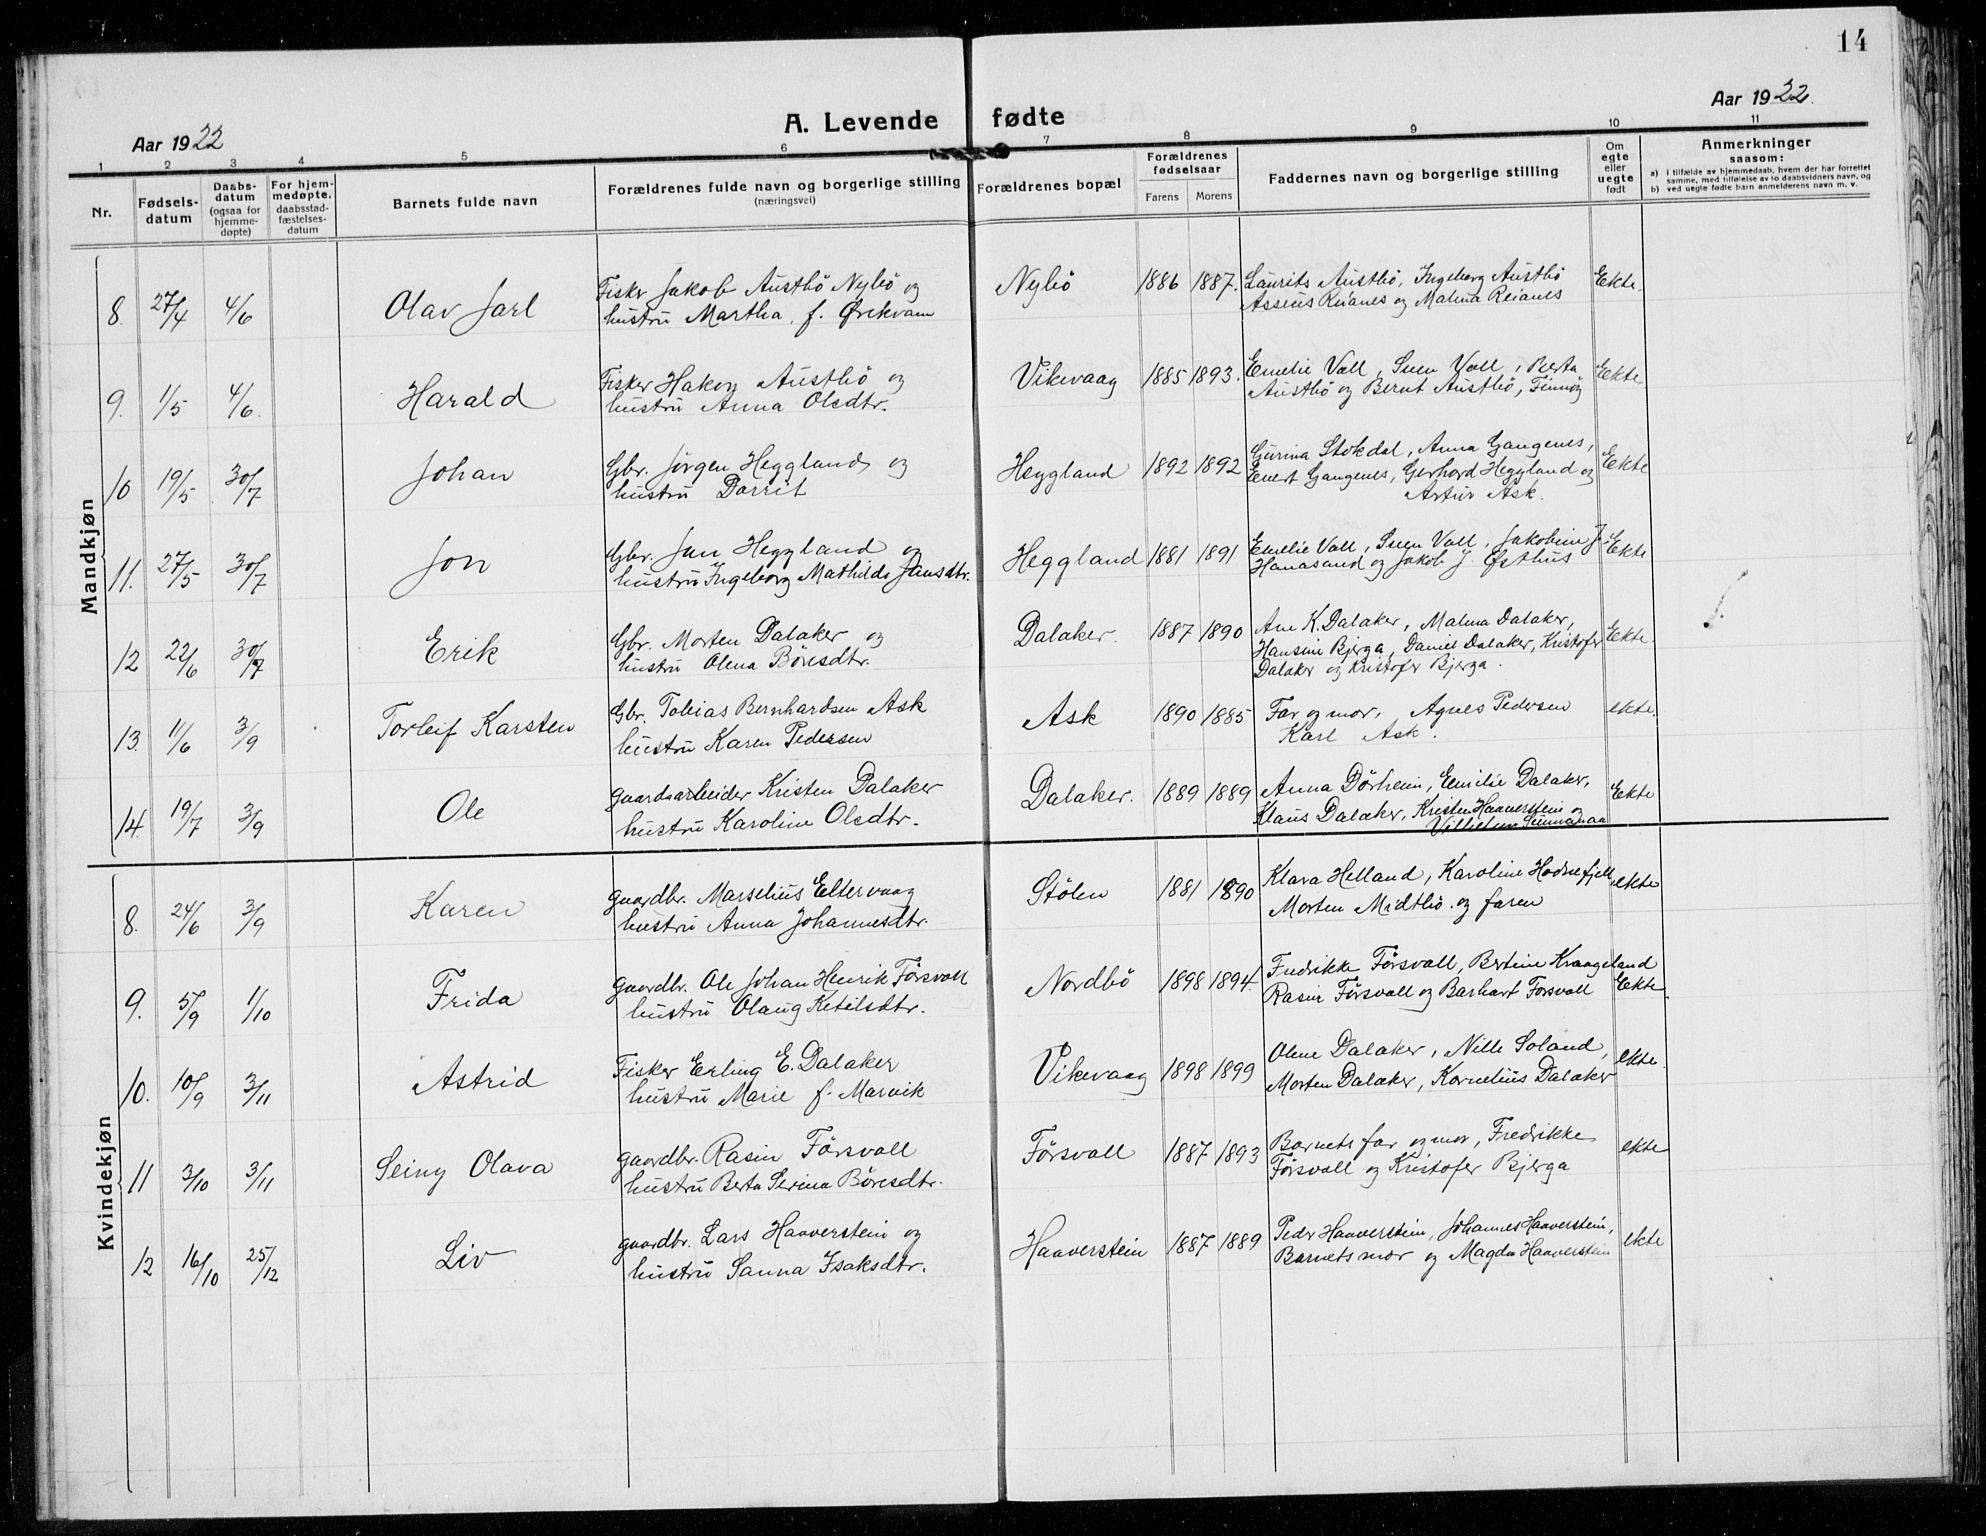 14
A. Levende fødte
Aar 1922
Aar 1922.
1 2 3 4 5 6 7 8 9 10 11
Nr.
Fødsels-
datum
Daabs-
datum
(ogsaa for
hjemme-
døpte)
For hjem-
medøpte,
daabsstad-
fæstelses-
datum
Barnets fulde navn
Forældrenes fulde navn og borgerlige stilling
(næringsvei)
Forældrenes bopæl
Forældrenes
fødselsaar
Farens Morens
Faddernes navn og borgerlige stilling
Om
egte
eller
uegte
født
Anmerkninger
saasom:
a) i tilfælde av hjemmedaab, hvem der har forrettet
samme, med tilføielse av to daabsvidners navn, og
b) ved uegte fødte barn anmelderens navn m. v.
Mandkjøn
8. 27/4 4/6 Olav Jarl
Fisker Jakob Austbö Nybö og
hustru Martha, f. Ørekvam
Nybö 1886 1887.
Laurits Austbö, Ingeborg Austbö
Asseus Reianes og Malena Reianes
Ekte.
9. 1/5 4/6. Harald
Fisker Hakon Austbö og
hustru Anna Olsdtr.
Vikevaag 1885 1893.
Emelie Vall, Sven Vall, Berta
Austbö og Bernt Austbö, Finnöy
Ekte.
10 19/5 30/7 Johan
Gbr. Jörgen Heggland og
hustru Dorrit
Heggland 1892 1892
Gurina Stokdal, Anna Gangenes,
Enert Gangenes, Gerhard Heggland og
Artur Ask.
Ekte
11. 27/5 30/7 Jon
Gbr. Jan Heggland og
hustru Ingeborg Mathilde Jansdtr.
Heggland 1881 1891
Emelie Vall, Sven Vall, Jakobine J.
Hanasand og Jakob J. Østhus
Ekte
12 22/6 30/7 Erik
Gbr. Morten Dalaker og
hustru Olena Böresdtr.
Dalaker. 1887 1890
Ane K. Dalaker, Malena Dalaker,
Hansine Bjerga, Daniel Dalaker, Kristofer
Dalaker og Kristofer Bjerga.
Ekte.
13. 11/6 3/9 Torleif Karsten
Gbr. Tobias Bernhardsen Ask
hustru Karen Pedersen
Ask 1890 1885
Far og mor, Agnes Pedersen
Karl Ask.
ekte.
14 19/7 3/9 Ole
gaardsarbeider Kristen Dalaker
hustru Karoline Olsdtr.
Dalaker. 1889 1889
Anna Dörheim, Emilie Dalaker,
Klaus Dalaker, Kristen Haaverstein og
Vilhelm
Ekte
Kvindekjøn
8. 24/6 3/9 Karen
gaardbr. Marselius Eltervaag
hustru Anna Johannesdtr.
Stölen 1881 1890
Klara Helland, Karoline Hodnefjell
Morten Midtbö og faren
ekte
9. 5/9 1/10 Frida
gaardbr. Ole Johan Henrik Försvoll
hustru Olaug Ketilsdtr.
Nordbö 1898 1894.
Fredrikke Försvoll, Bertine Kraageland
Rasin Försvoll og Barhart Försvoll
Ekte.
10. 10/9 3/11 Astrid
Fisker Erling E. Dalaker
hustru Marie f. Marvik
Vikevaag 1898 1899
Olene Dalaker, Nille Soland,
Morten Dalaker, Kornelius Dalaker
ekte.
11 3/10 3/11 Seiny Olava
gaardbr. Rasin Försvoll
hustru Berta Serina Böresdtr.
Försvoll 1887 1893
Barnets far og mor, Fredrikke
Försvoll og Kristofer Bjerga
ekte
12 16/10 25/12 Liv
gaardbr. Lars Haaverstein og
hustru Sanna Isaksdtr.
Haaverstein 1887 1889
Peder Haaverstein, Johannes Haaverstein,
Barnets mor og Magda Haaverstein
ekte